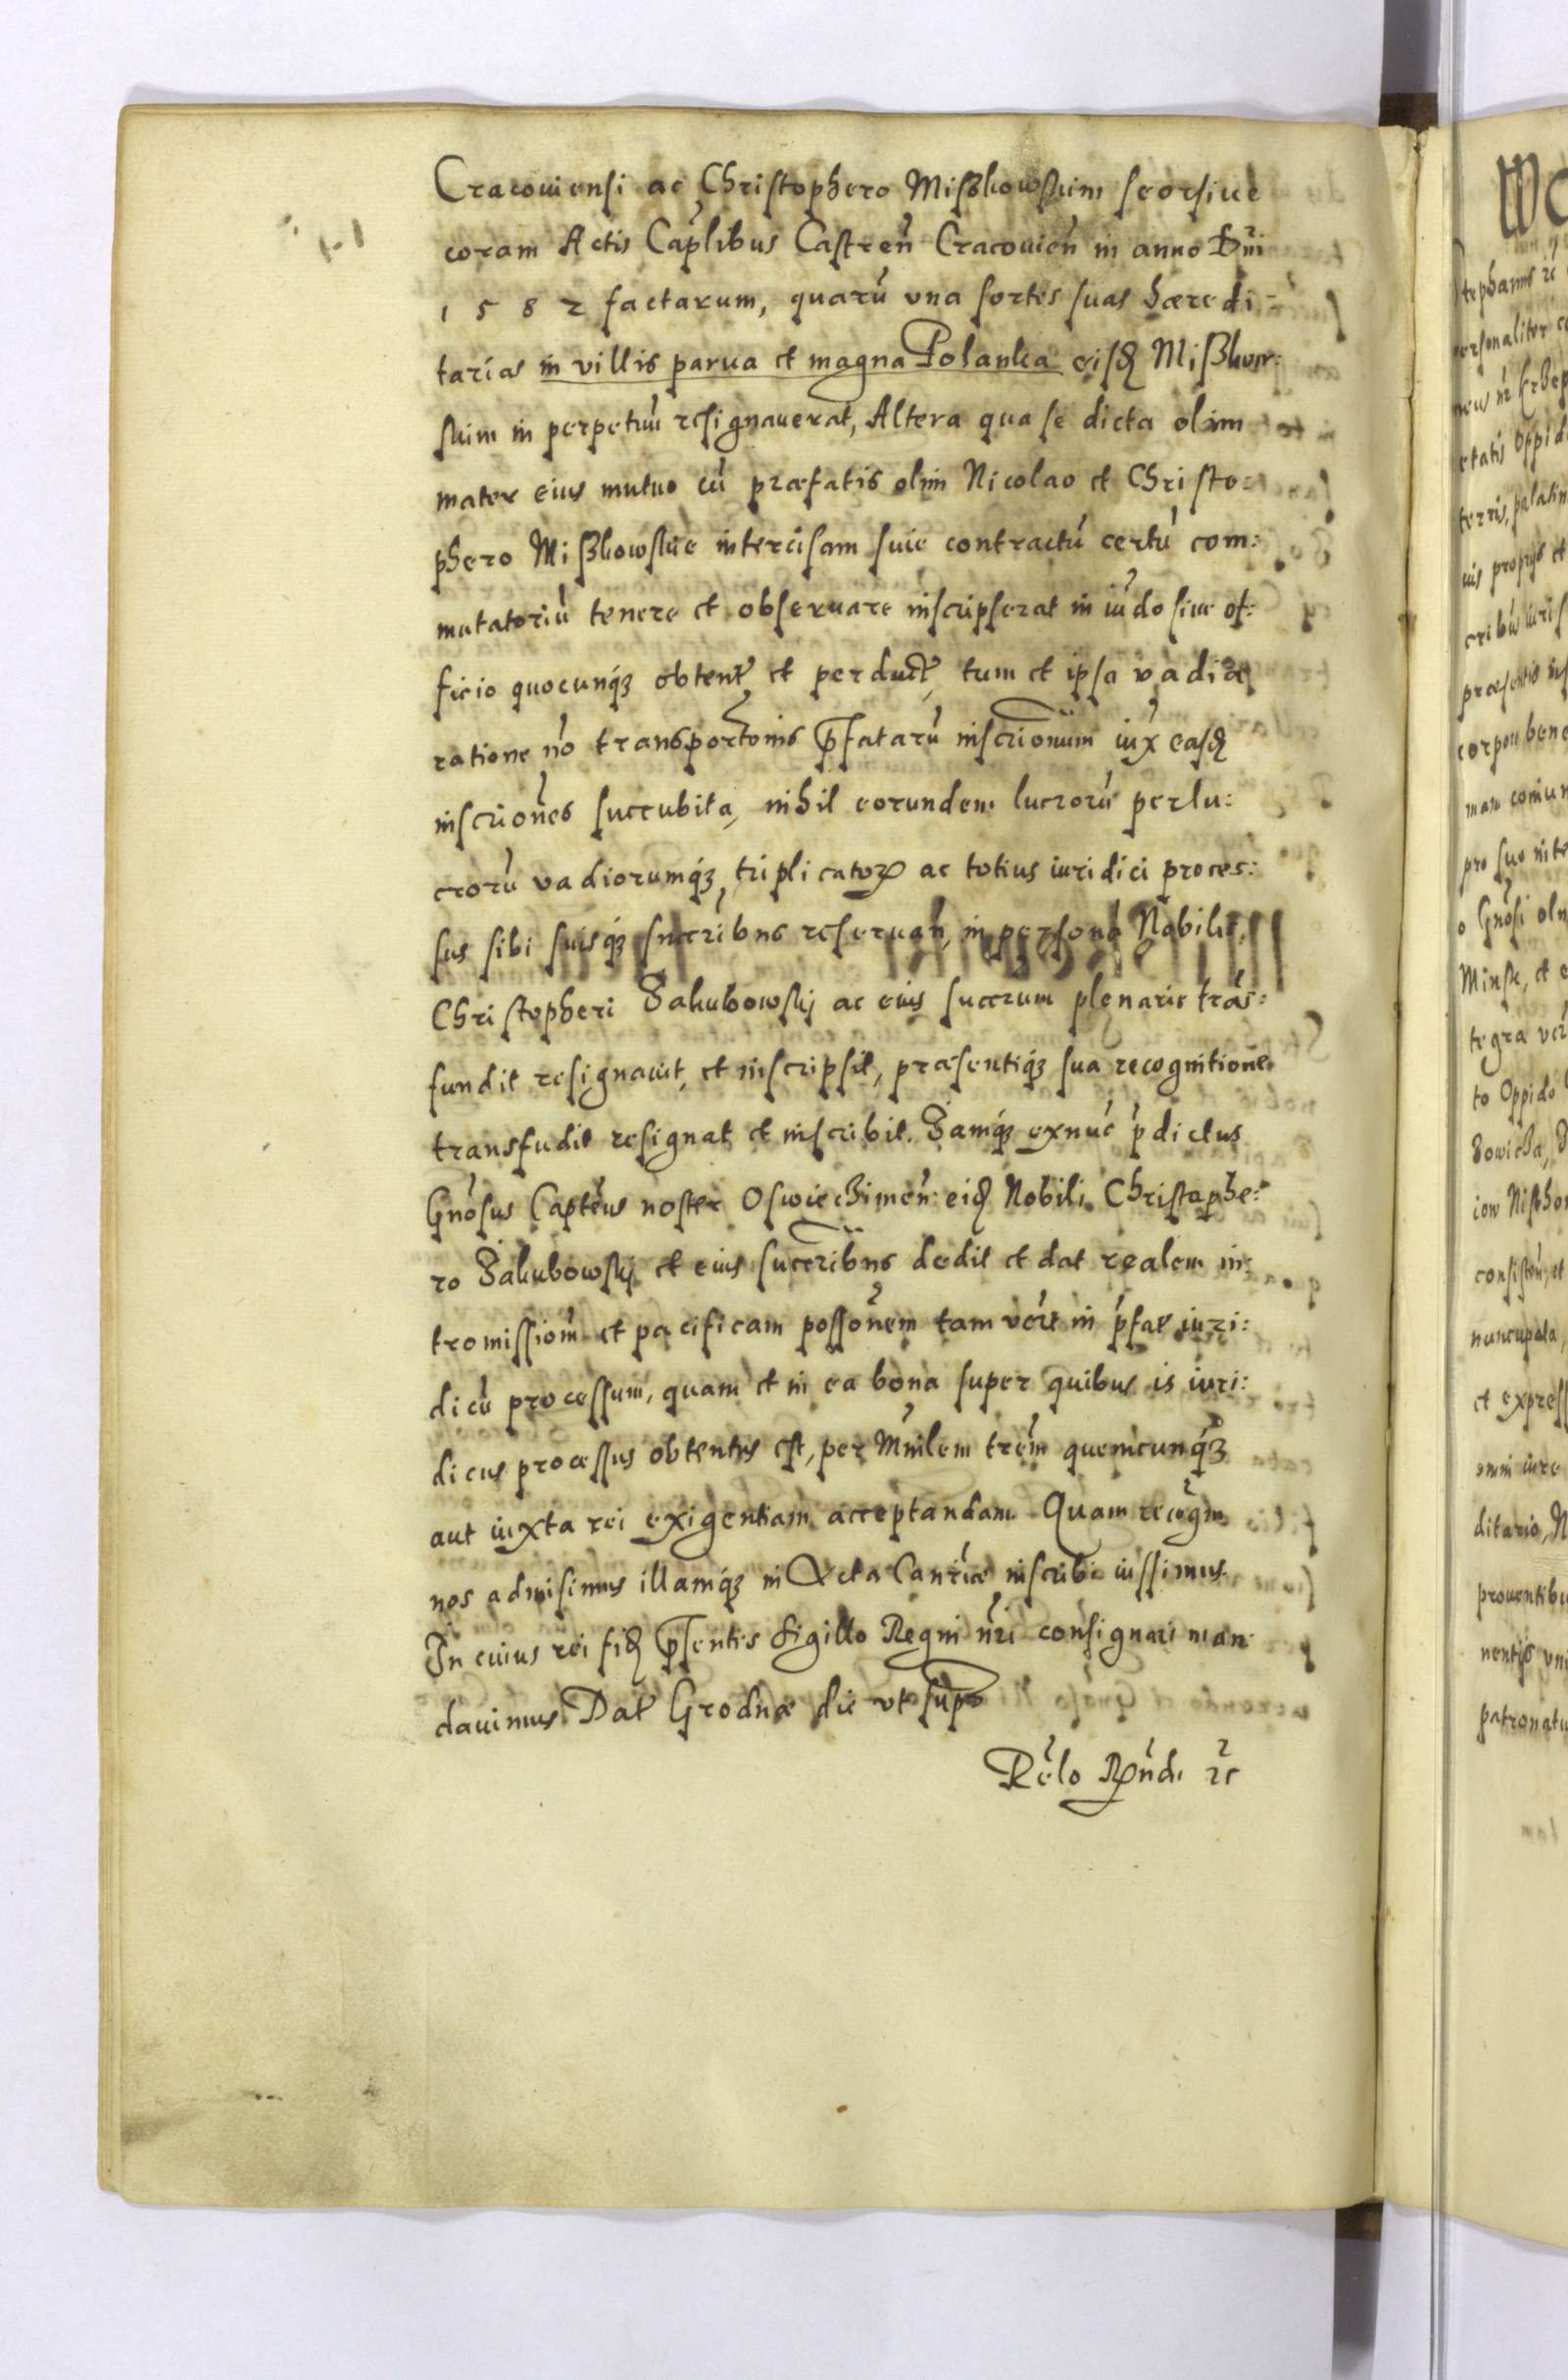 Cracouiensi ac Christophero Mißkowskim seorsiue
coram Actis Capłibus Castreń Cracouień in anno Dńi
1582 factarum, quarū vna sortes suas hæredi-
tarias in villis parua et magna Polanka eisdӡ Mißkow:
skim in perpetuū resignauerat, Altera qua se dicta olim
mater eius mutuo cū præfatis olim Nicolao et Christo:
phero Mißkowskie intercisam siue contractū certū com:
mutatoriū tenere et obseruare inscripserat in iudo siue of:
ficio quocunqӡ obtent et perduct, tum et ipsa vadia
ratione nō transportonis p̄fatarū inscrionum iux easdӡ
inscriones succubita, nihil eorundem lucrorū perlu:
crorū vadiorumqӡ triplicatorꝝ ac totius iuridici proces:
sus sibi suisqӡ succribus reseruań, in persona Nobilis
Christopheri Jakubowskj ac eius succrum plenarie trās:
fundit resignauit, et inscripsit, præsentiqӡ sua recognitione
transfudit resignat et inscribit. Jamqӡ exnūc p̄dictus
Gnōsus Captēus noster Oswieczimeń eidӡ Nobili Christophe:
ro Jakubowskj et eius succribus dedit et dat realem in:
tromissiom̄ et pacificam possonem tam vēre in p̄fat iuri:
dicū processum, quam et in ea bona super quibus is iuri:
dicus processus obtentus est, per Mnilem trēm quemcunqӡ
aut iuxta rei exigentiam acceptandam Quam recogm̄
nos admisimus illamqӡ in Acta Canriæ inscribi iussimus
In cuius rei fidӡ p̄sentes Sigillo Regni nr̄i consignari man
dauimus Dat Grodnæ die vt supꝛ
Rēlo Rn̄di ꝛc